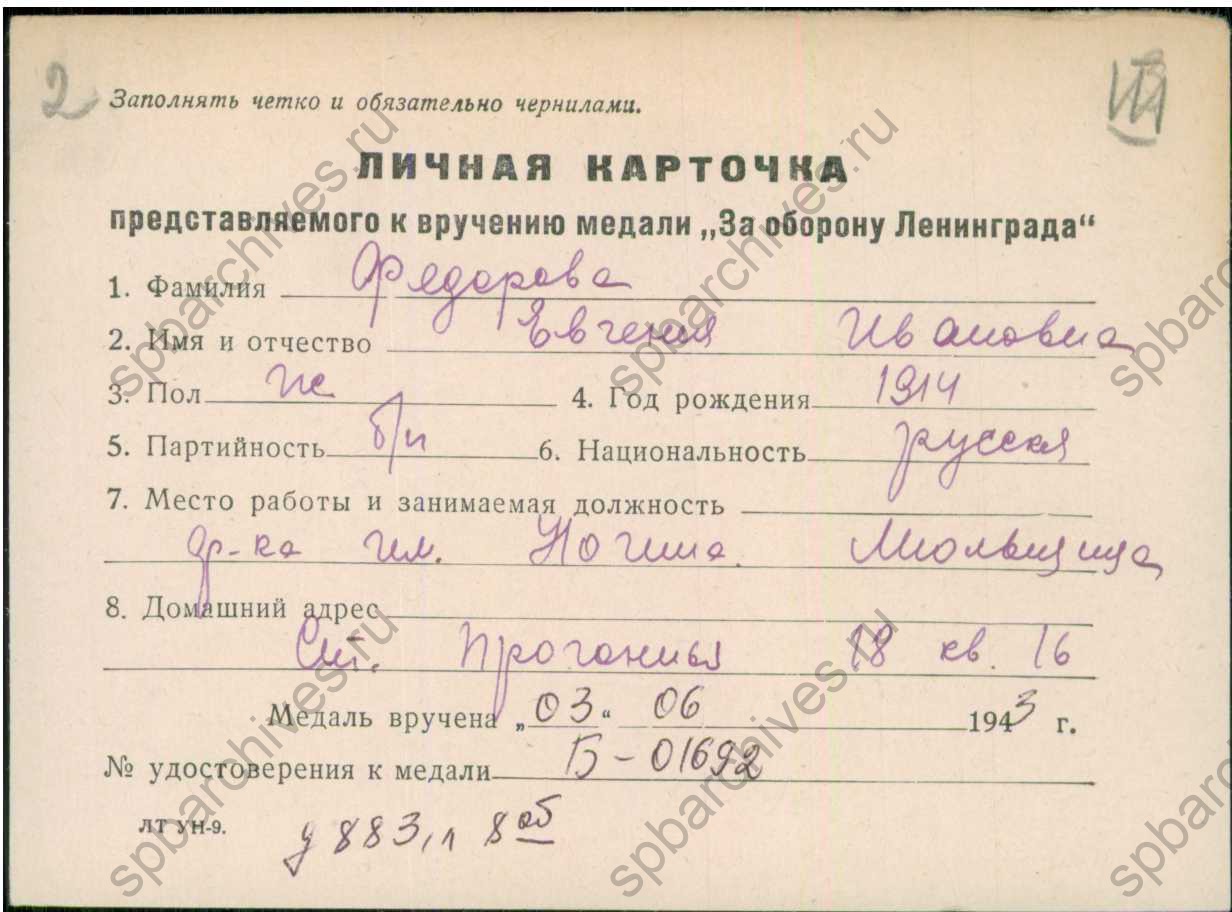 2
Заполнять четко и обязательно чернилами.
ЛИЧНАЯ КАРТОЧКА
представляемого к вручению медали „За оборону Ленинграда“
1. Фамилия Федорова
2. Имя и отчество Евгения Ивановна
3. Пол ж 4. Год рождения 1914
5. Партийность б/п 6. Национальность русская
7. Место работы и занимаемая должность
ф-ка им. Ногина.
8. Домашний адрес
Ст. Прогонная 18 кв. 16
Медаль вручена „03“ 06 1943 г.
№ удостоверения к медали Б-01692
ЛТ УН-9. д 883, л 8 об
spbarchives.ru